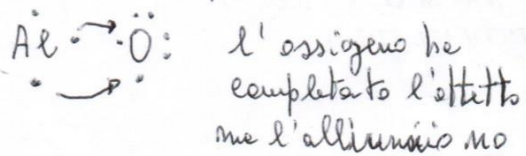 Al O l'ossigeno ha
completato l'ottetto
ma l'alluminio no